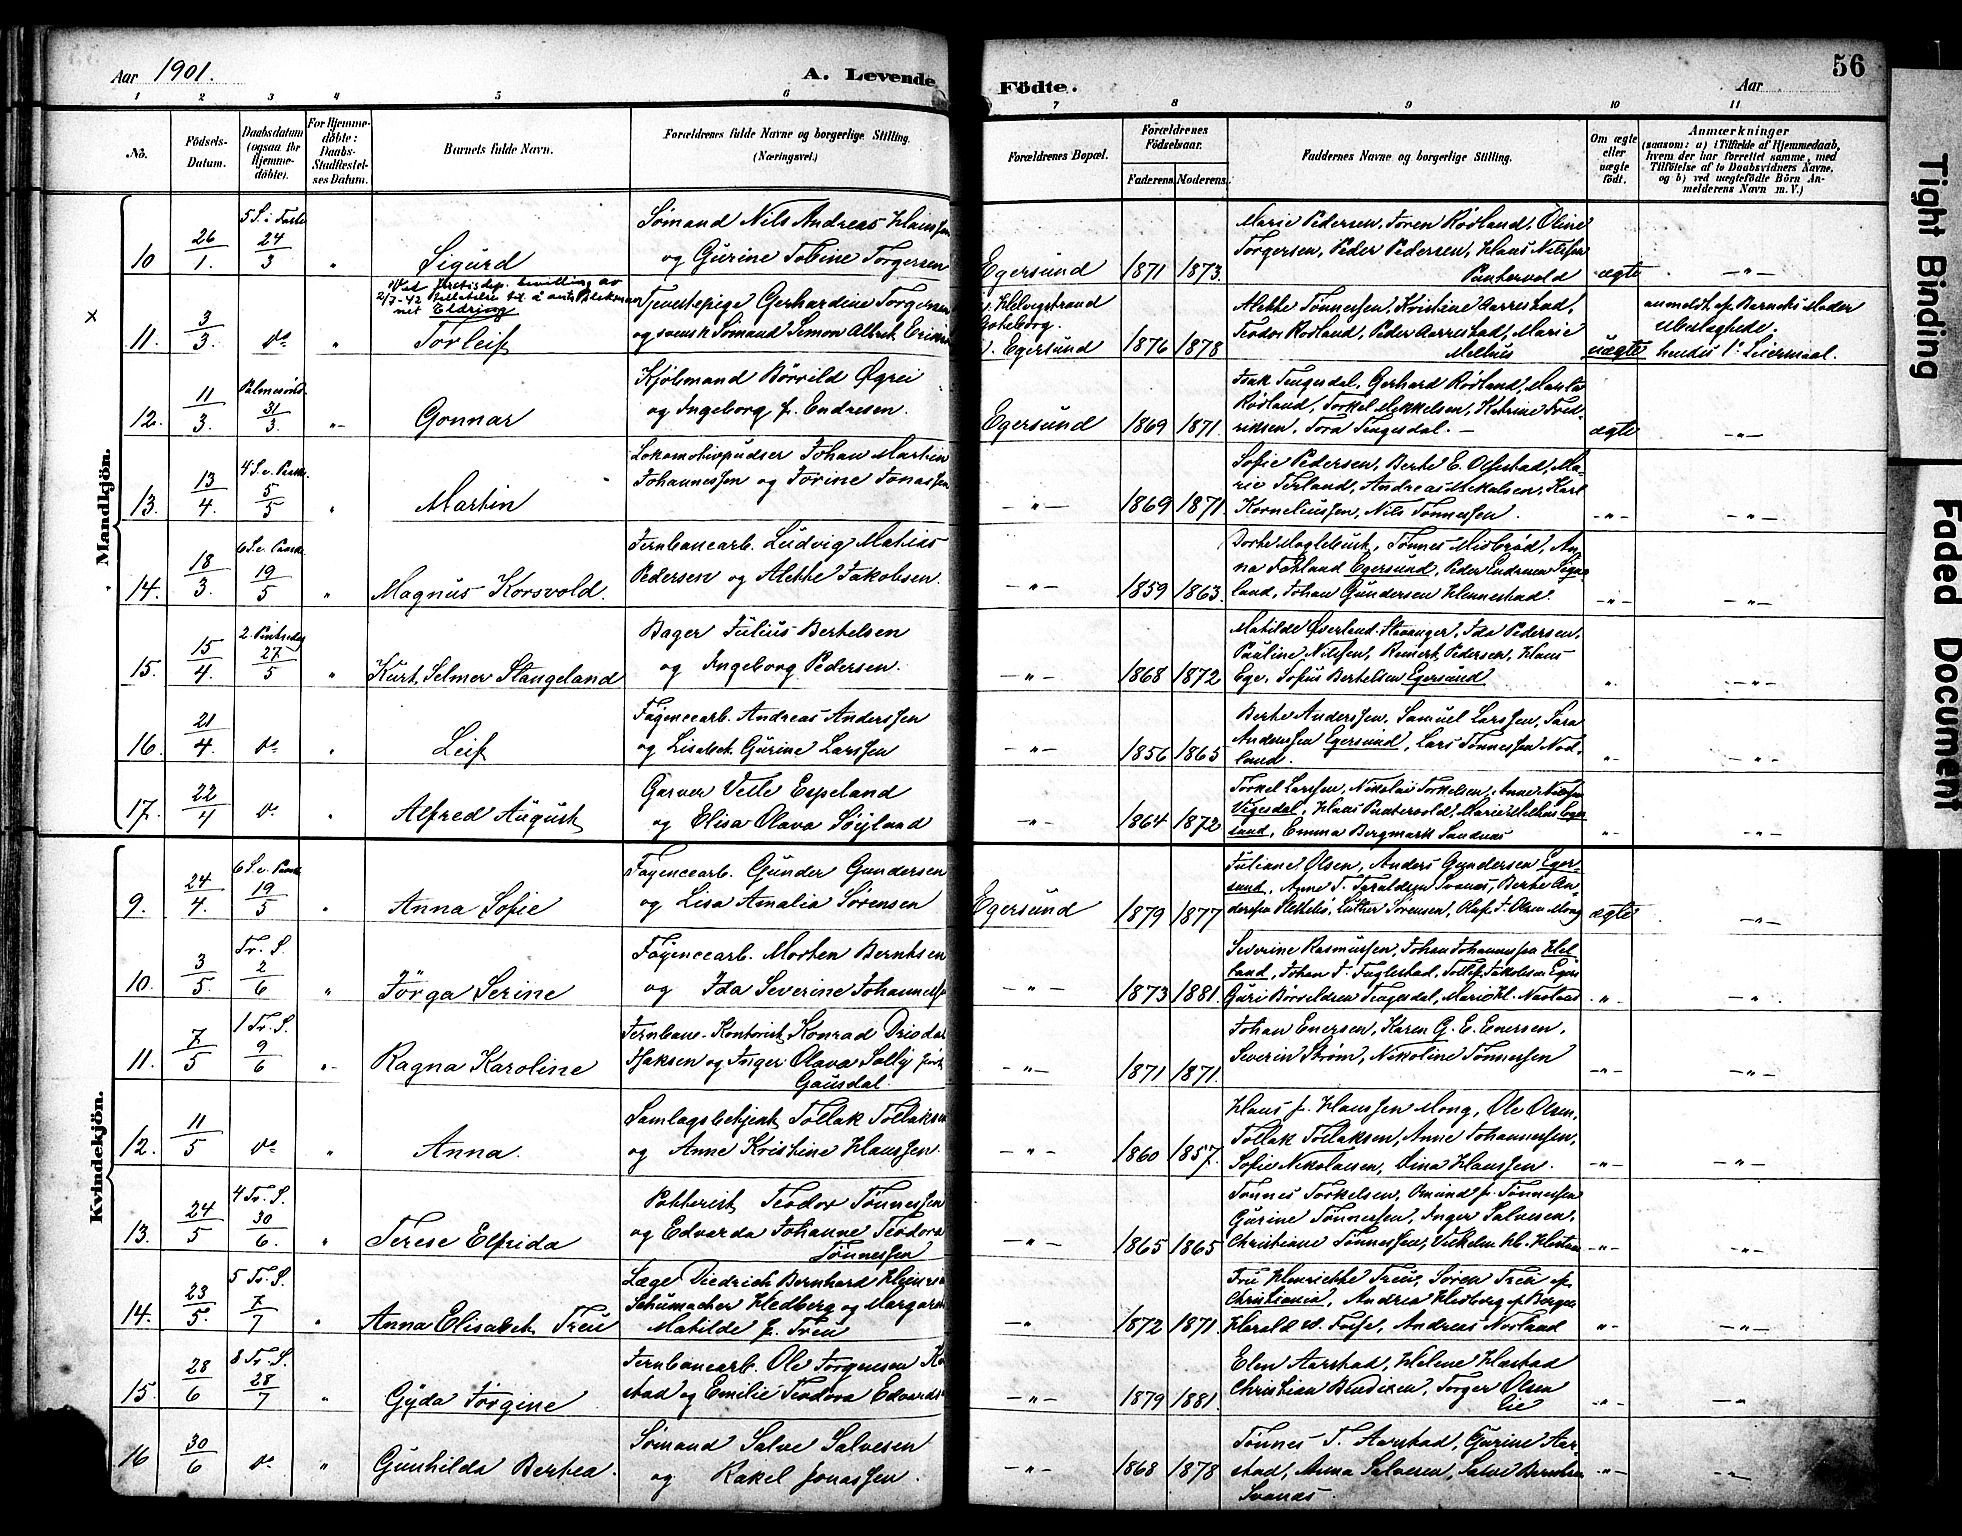 56
Aar 1901.
A. Levende
Födte.
Aar
1 2 3 4 5 6 7 8 9 10 11
No.
Födsels-Datum.
Daabsdatum (ogsaa for Hjemme-döbte).
For Hjemme-döbte: Daabs-Stadfæstel-ses Datum.
Barnets fulde Navn.
Forældrenes fulde Navne og borgerlige Stilling. (Næringsvei.)
Forældrenes Bopæl.
Forældrenes Födselsaar.
Faderens. Moderens.
Faddernes Navne og borgerlige Stilling.
Om ægte eller uægte födt.
Anmærkninger
(saasom: a) i Tilfælde af Hjemmedaab, hvem der har forrettet samme, med Tilföielse af to Daabsvidners Navne, og b) ved uægtefödte Börn An-melderens Navn m. V.)
Mandkjön.
10 26/1. 5 S. i Faste 24/3 " Sigurd
Sömand Nils Andreas Hansen
og Gurine Tobine Torgersen
Egersund 1871 1873.
Marie Pedersen, Soren Rödland, Oline
Torgersen, Peder Pedersen, Hans Nilssen
Puntervold ægte — " —
x 11. 3/3. do " Torleif
Ved Justisdep. bevilling av
2/7-42 tillatelse til å anta
net Eldring
Tjenestepige Gerhardine Torgersen
og svensk Sömand Simon Albert
Göteborg.
Egersund 1876 1878
Alette Tönnessen, Kristine Aarrestad,
Teodor Rödland, Peder Aarrestad, Marie
Melhus uægte
anmeldt af Barnets Moder
Ubeslægtede.
hendes 1ste Leiermaal.
12. 11/3. Palmesönd. 31/3. " Gonnar
Kjöbmand Börrild Ögrei
og Ingeborg f. Endresen.
Egersund 1869 1871.
Isak Tengesdal, Gerhard Rödland, Marta
Rödland, Torkel Mikkelsen, Katrine Fred-
riksen, Tora Tengesdal. — ægte — " —
13. 13/4. 4 S. e. Paaske 5/5 " Martin
Lokomotivpudser Johan Martin
Johannessen og Torine Jonassen
— " — 1869 1871.
Sofie Pedersen, Berte E. Ollestad, Ma-
rie Terland, Andreas Mikalsen, Karl
Korneliussen, Nils Tönnessen. — " — — " —
14. 18/3. 6 S. e. Paaske 19/5 " Magnus Korsvold.
Jernbanearb. Ludvig Matias
Pedersen og Alette Jakobsen.
— " — 1859 1863.
Dorte Maglebust, Tönnes Misbröd, An-
na Fotland Egersund, Peder Endresen
land, Johan Gundersen Hennestad. — " — — " —
15. 15/4. 2. Pintsedag 27/5 " Kurt Selmer Stangeland
Bager Julius Bertelsen
og Ingeborg Pedersen.
— " — 1868 1872
Matilde Överland Stavanger, Ida Pedersen,
Pauline Nilssen, Reinert Pedersen, Hans
Ege, Sofus Bertelsen Egersund " — " —
16. 21/4. do " Leif
Fayencearb. Andreas Anderssen
og Lisabet Gurine Larssen
— " — 1856 1865
Berte Anderssen, Samuel Larssen, Sara
Anderssen Egersund, Lars Tönnessen Nod-
land. " — — " —
17. 22/4 do " Alfred August
Garver Velle Espeland
og Elisa Olava Söyland
— " — 1864 1872
Torkel Larssen, Nikolai Torkelsen, Anne
Vigesdal, Hans Puntervold, Marie Melhus Eger-
sund, Emma Bergmark Sandnes " — — " —
Kvindekjön.
9. 24/4. 6 S. e. Paaske 19/5 " Anna Sofie
Fayencearb. Gunder Gundersen
og Lisa Amalia Sörensen
Egersund 1879 1877
Juliane Olsen, Anders Gundersen Eger-
sund, Anne T. Taraldsen Svanes, Berte An-
derssen, Luther Sörensen, Oluf T. Olsen Mong ægte — " —
10. 3/5. Tr. S. 2/6 " Jörga Serine
Fayencearb. Morten Berntsen
og Ida Severine Johannessen
— " — 1873 1881.
Severine Rasmussen, Johan Johannessen Hel-
land, Johan J. Fuglestad, Tollef Jakobsen Egers
Guri Tengesdal, Marie Kl. " — "
11. 7/5 1 Tr. S. 9/6 " Ragna Karoline
Jernbane-Kontorist Konrad
Isaksen og Inger Olava Solly född
Gausdal
— " — 1871 1871.
Johan Enersen, Karen G. E. Enersen,
Severin Ström, Nikoline Tönnessen — " — — " —
12. 11/5 do " Anna.
Samlagsbetjent Tollak Tollaksen
og Anne Kristine Hanssen.
— " — 1860 1857.
Hans f. Hanssen Mong, Ole Olsen,
Tollak Tollaksen, Anne Johannessen,
Sofie Nikolaisen, Dina Hanssen. — " — — " —
13. 24/5 4 Tr. S. 30/6. " Terese Elfrida
Potterist Teodor Tönnessen
og Edvarda Johanne Teodora
Tönnessen
— " — 1865 1865
Tönnes Torkelsen, Omund f. Tönnessen
Gurine Tönnessen, Inger Salvesen,
Christiane Tönnessen, Vilhelm — " — — " —
14. 23/5. 5 Tr. S. 7/7 " Anna Elisabet Treu
Læge Diedrich Bernhard
Schumacher Hedberg og Margarete
Matilde f. Treu
— " 1872 1871
Fru Henriette Treu, Sören Treu af
Christiania, Andrea Hedberg af Bergen
Harald W. Feife, Andreas Norland " — — " —
15. 28/6 8 Tr. S. 28/7 " Gyda Jörgine
Jernbanearb. Ole Jörgensen
stad og Emilie Teodora
— " — 1879 1881.
Elen Aarstad, Helene Hæstad
Christian Bendixen, Torger Olsen
Lie — " — — "
16 30/6 do " Gunhilda Bertea.
Sömand Salve Salvesen
og Rakel Jonassen.
— " — 1868 1878
Tönnes T. Aarstad, Gurine Aar-
stad, Anna Salvesen, Salve Berntsen
Svanes. — " — — " —
Tight Binding
Faded Document